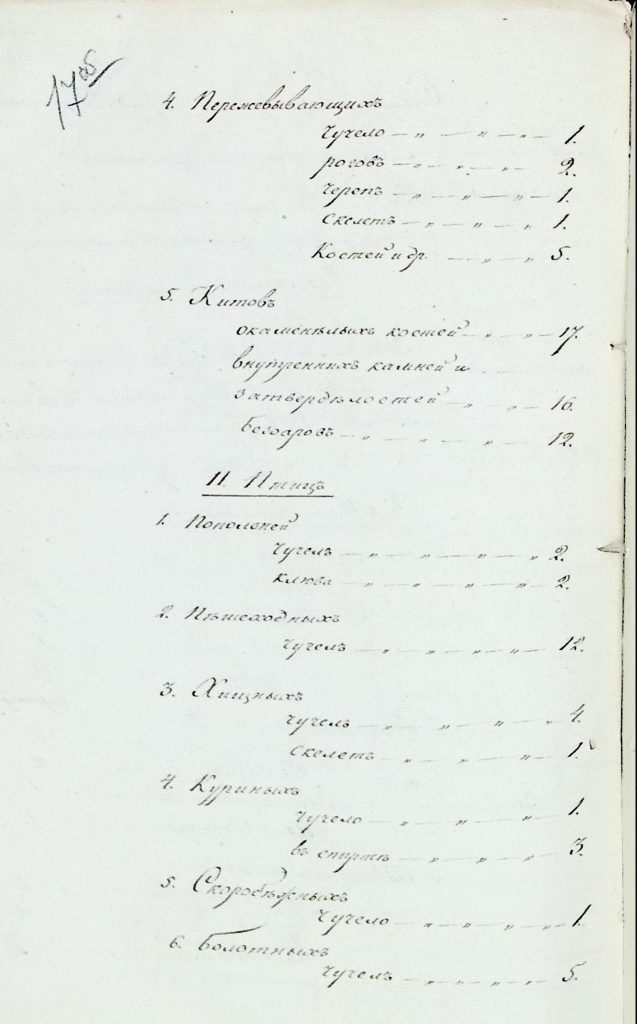 17об
4. Пережевывающихъ
Чучело — „ — „ — „ — 1.
роговъ — „ — „ — „ — 2.
Черепъ — „ — „ — „ — 1.
Скелетъ — „ — „ — „ — 1.
Костей и др. — „ — „ — 5.
5. Китовъ
окаменѣлыхъ костей — „ — „ — 17.
внутреннихъ камней и
затвердѣлостей — „ — „ — 16.
Безоаровъ — „ — „ — „ — 12.
II. Птицъ
1. Поползней
Чучелъ — „ — „ — „ — „ — 2.
Клюва — „ — „ — „ — „ — 2.
2. Пѣшеходныхъ
Чучелъ — „ — „ — „ — 12.
3. Хищныхъ
Чучелъ — „ — „ — „ — 4.
Скелетъ — „ — „ — „ — 1.
4. Куриныхъ
Чучело — „ — „ — „ — 1.
въ спиртѣ — „ — „ — „ — 3.
5. Скоробѣжныхъ
Чучело — „ — „ — „ — 1.
6. Болотныхъ
Чучелъ — „ — „ — „ — 5.